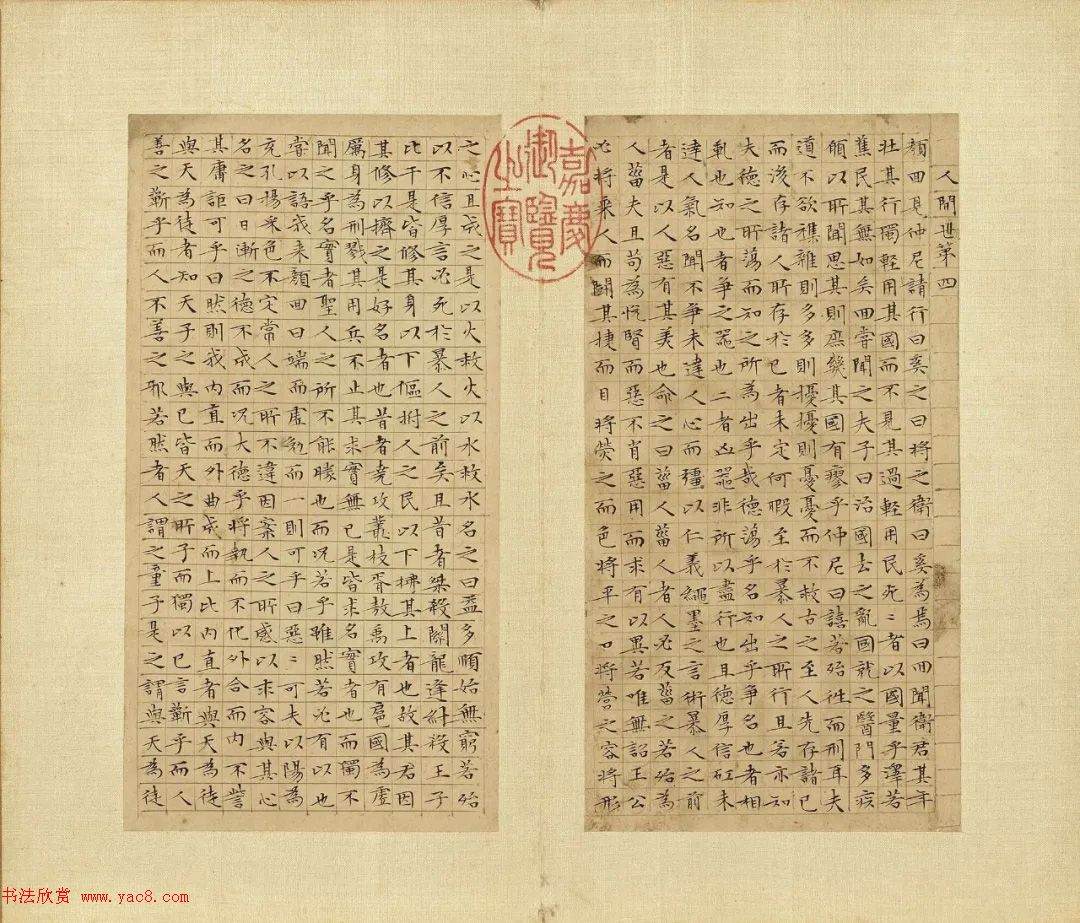 人間世第四
顏回見仲尼請行曰奚之曰將之衛曰奚為焉曰回聞衛君其年
壯其行獨輕用其國而不見其過輕用民死〻者以國量乎澤若
蕉民其無如矣回嘗聞之夫子曰治國去之亂國就之醫門多疾
願以所聞思其則庶幾其國有瘳乎仲尼曰譆若殆往而刑耳夫
道不欲雜雜則多多則擾擾則憂憂而不救古之至人先存諸己
而後存諸人所存於己者未定何暇至於暴人之所行且若亦知
夫德之所蕩而知之所為出乎哉德蕩乎名知出乎爭名也者相
軋也知也者爭之器也二者凶器非所以盡行也且德厚信矼未
達人氣名聞不爭未達人心而彊以仁義繩墨之言術暴人之前
者是以人惡有其美也命之曰菑人菑人者人必反菑之若殆為
人菑夫且苟為悅賢而惡不肖惡用而求有以異若唯無詔王公
必將乘人而鬭其捷而目將熒之而色將平之口將營之容將形
嘉慶
御覽
之寶
之心且成之是以火救火以水救水名之曰益多順始無窮若殆
以不信厚言必死於暴人之前矣且昔者桀殺關龍逢紂殺王子
比干是皆修其身以下傴拊人之民以下拂其上者也故其君因
其修以擠之是好名者也昔者堯攻叢枝胥敖禹攻有扈國為虛
厲身為刑戮其用兵不止其求實無已是皆求名實者也而獨不
聞之乎名實者聖人之所不能勝也而況若乎雖然若必有以也
嘗以語我來顏回曰端而虛勉而一則可乎曰惡〻可夫以陽為
充孔揚采色不定常人之所不違因案人之所感以求容與其心
名之曰日漸之德不成而況大德乎將執而不化外合而內不訾
其庸詎可乎曰然則我內直而外曲成而上比內直者與天為徒
與天為徒者知天子之與己皆天之所子而獨以己言蘄乎而人
善之蘄乎而人不善之邪若然者人謂之童子是之謂與天為徒
书法欣赏 www.yac8.com